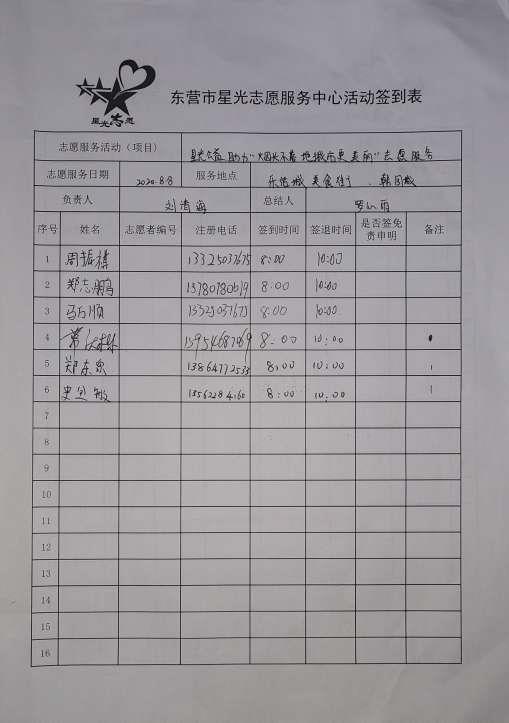 星光志愿
东营市星光志愿服务中心活动签到表
志愿服务活动（项目） 星光公益助力"烟头不落地城市更美丽"志愿服务
志愿服务日期 2020.8.8 服务地点 乐佰城美食街、韩国城
负责人 刘清海 总结人
序号 姓名 志愿者编号 注册电话 签到时间 签退时间 是否签免责申明 备注
1 周振禧 13325037675 8:00 10:00
2 郑志鹏 13780780619 8:00 10:00
3 马万顺 13325037675 8:00 10:00
4 8:00 10:00
5 郑东东 13864772533 8:00 10:00
6 8:00 10:00
7
8
9
10
11
12
13
14
15
16